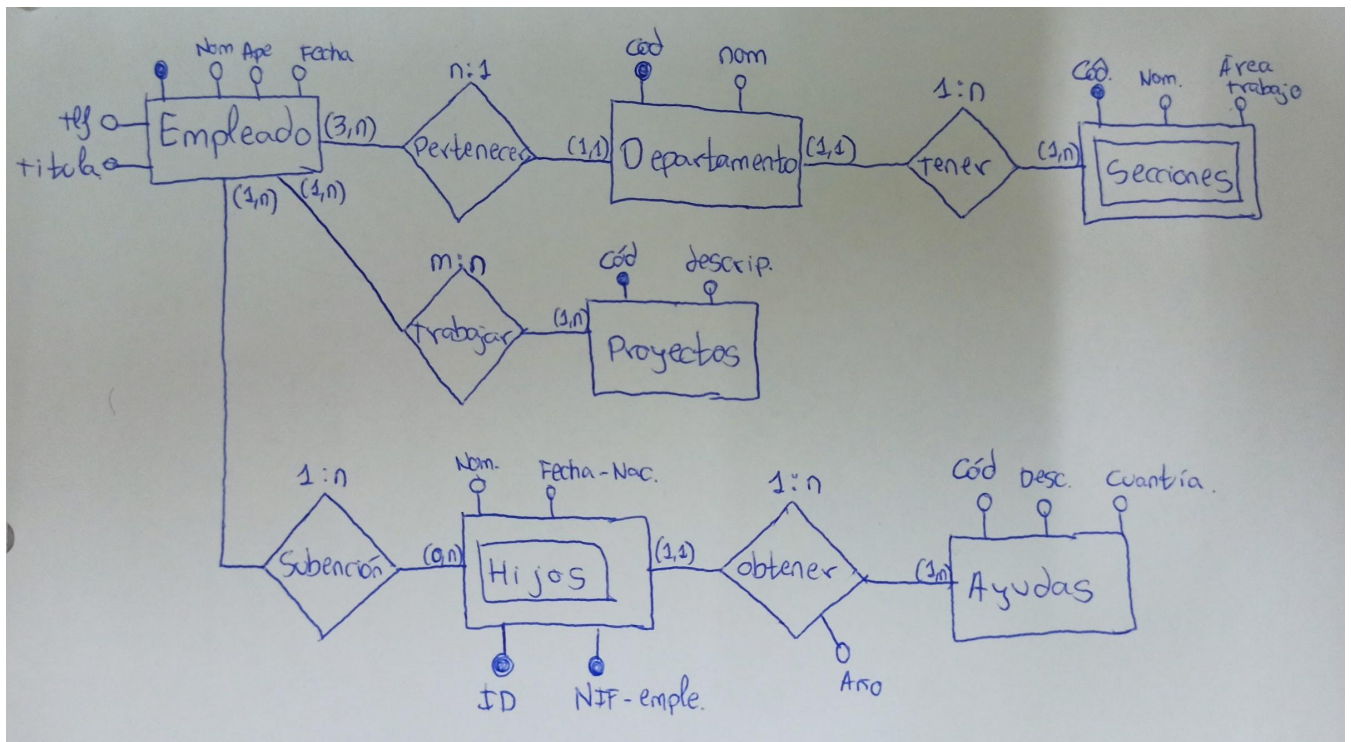 Nom Ape Fecha
tlf
titula
Empleado
(3,n)
n:1
Pertenecer
(1,1)
Cód
nom
Departamento
(1,1)
1:n
tener
(1,n)
Cód.
Nom.
Área
trabajo
Secciones
(1,n)
(1,n)
m:n
trabajar
(1,n)
Cód
descrip.
Proyectos
1:n
Subención
(0,n)
Nom.
Fecha-Nac.
Hijos
ID
NIF-emple.
(1,1)
1:n
obtener
Año
(1,n)
Cód
Desc.
Cuantía.
Ayudas